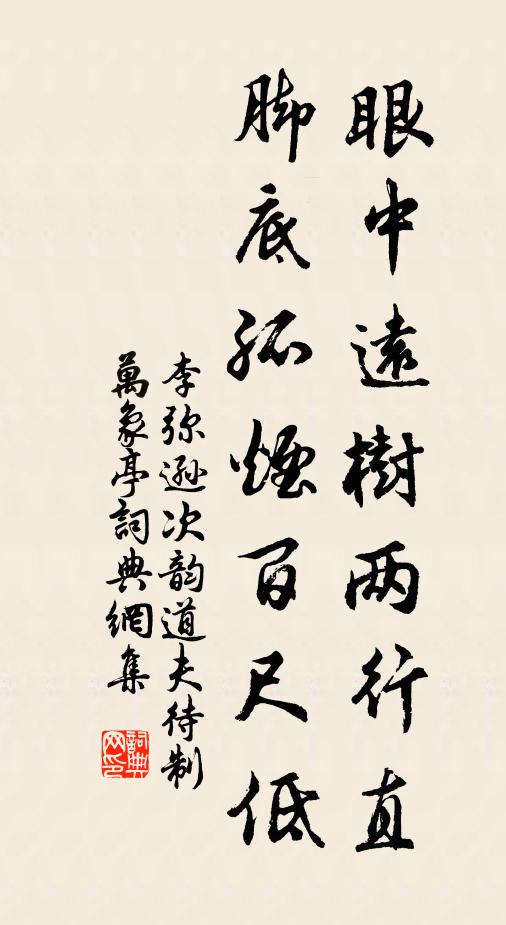 眼中遠樹两行直
脚底孤煙百尺低
李弥遜次韵道夫待制
萬象亭詞典網集
詞典网印